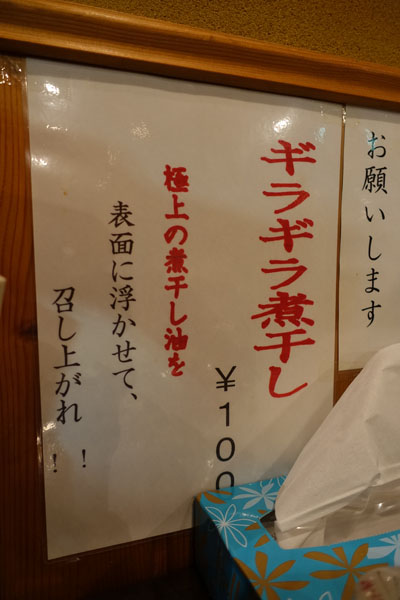 お願いします
ギラギラ煮干し
¥100
極上の煮干し油を
表面に浮かせて、
召し上がれ!!